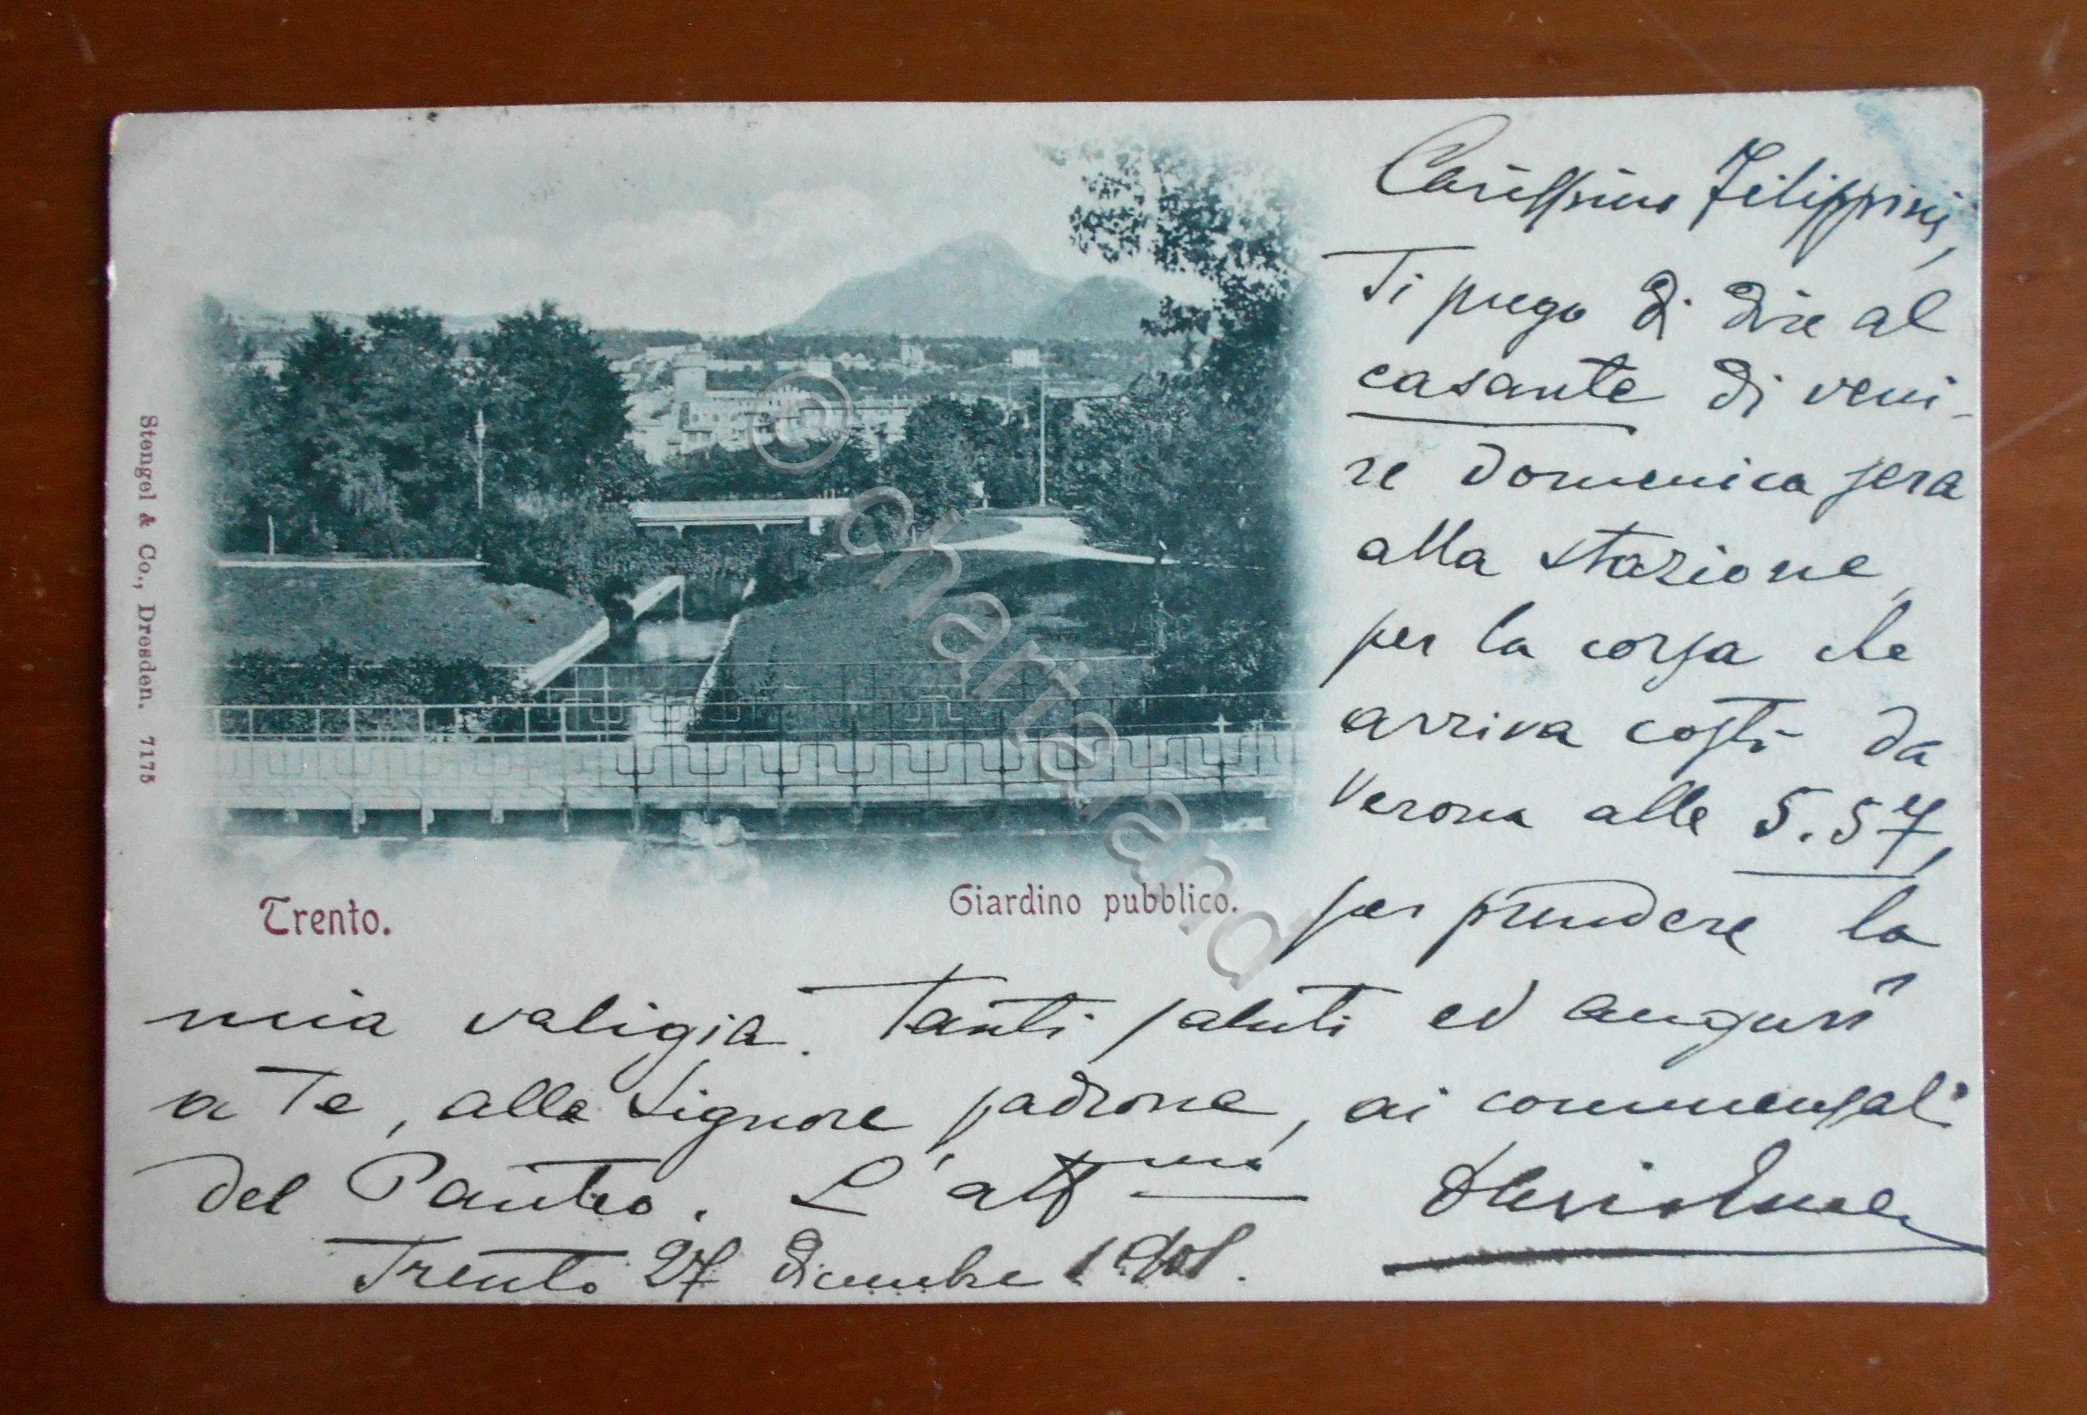 Carissimo Filippini,
Ti prego di dire al
casante di veni-
re domenica sera
alla stazione,
per la corsa che
arriva costì da
Verona alle 5.57,
per prendere la
mia valigia. Tanti saluti ed auguri
a te, alla signora padrona, ai commensali
del Panteo. L'aff mo
Trento 27 dicembre 1901.
Trento.
Giardino pubblico.
Stengel & Co., Dresden. 7175
© chartaland